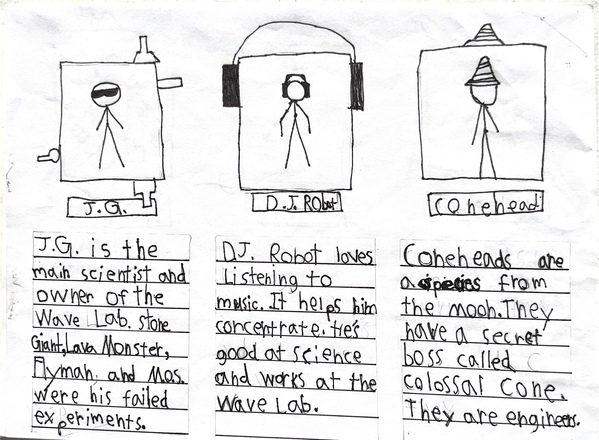 J.G.
D.J. RObot
Conehead
J.G. is the
main scientist and
owner of the
Wave Lab. stone
Giant, Lava Monster,
Flyman, and Mas.
were his failed
experiments.
DJ. Robot loves
Listening to
music. It helps him
concentrate. He's
good at science
and works at the
Wave Lab.
Coneheads are
a species from
the moon. They
have a secret
boss called
colossal cone.
They are engineers.